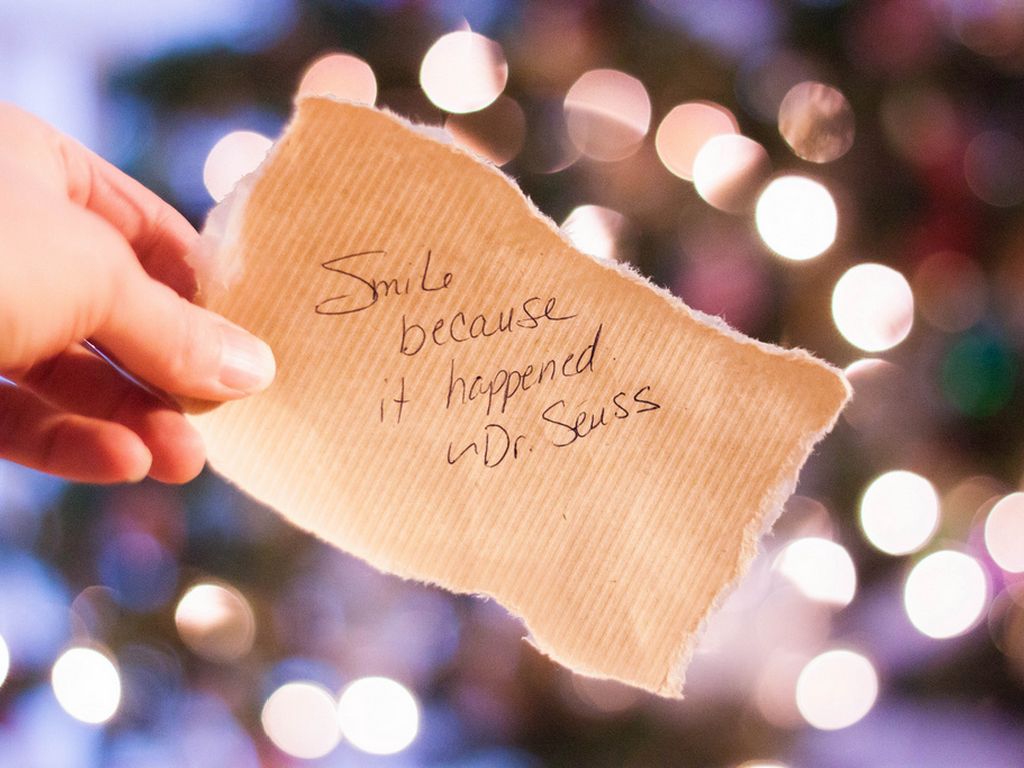 Smile
because
it happened.
~Dr. Seuss